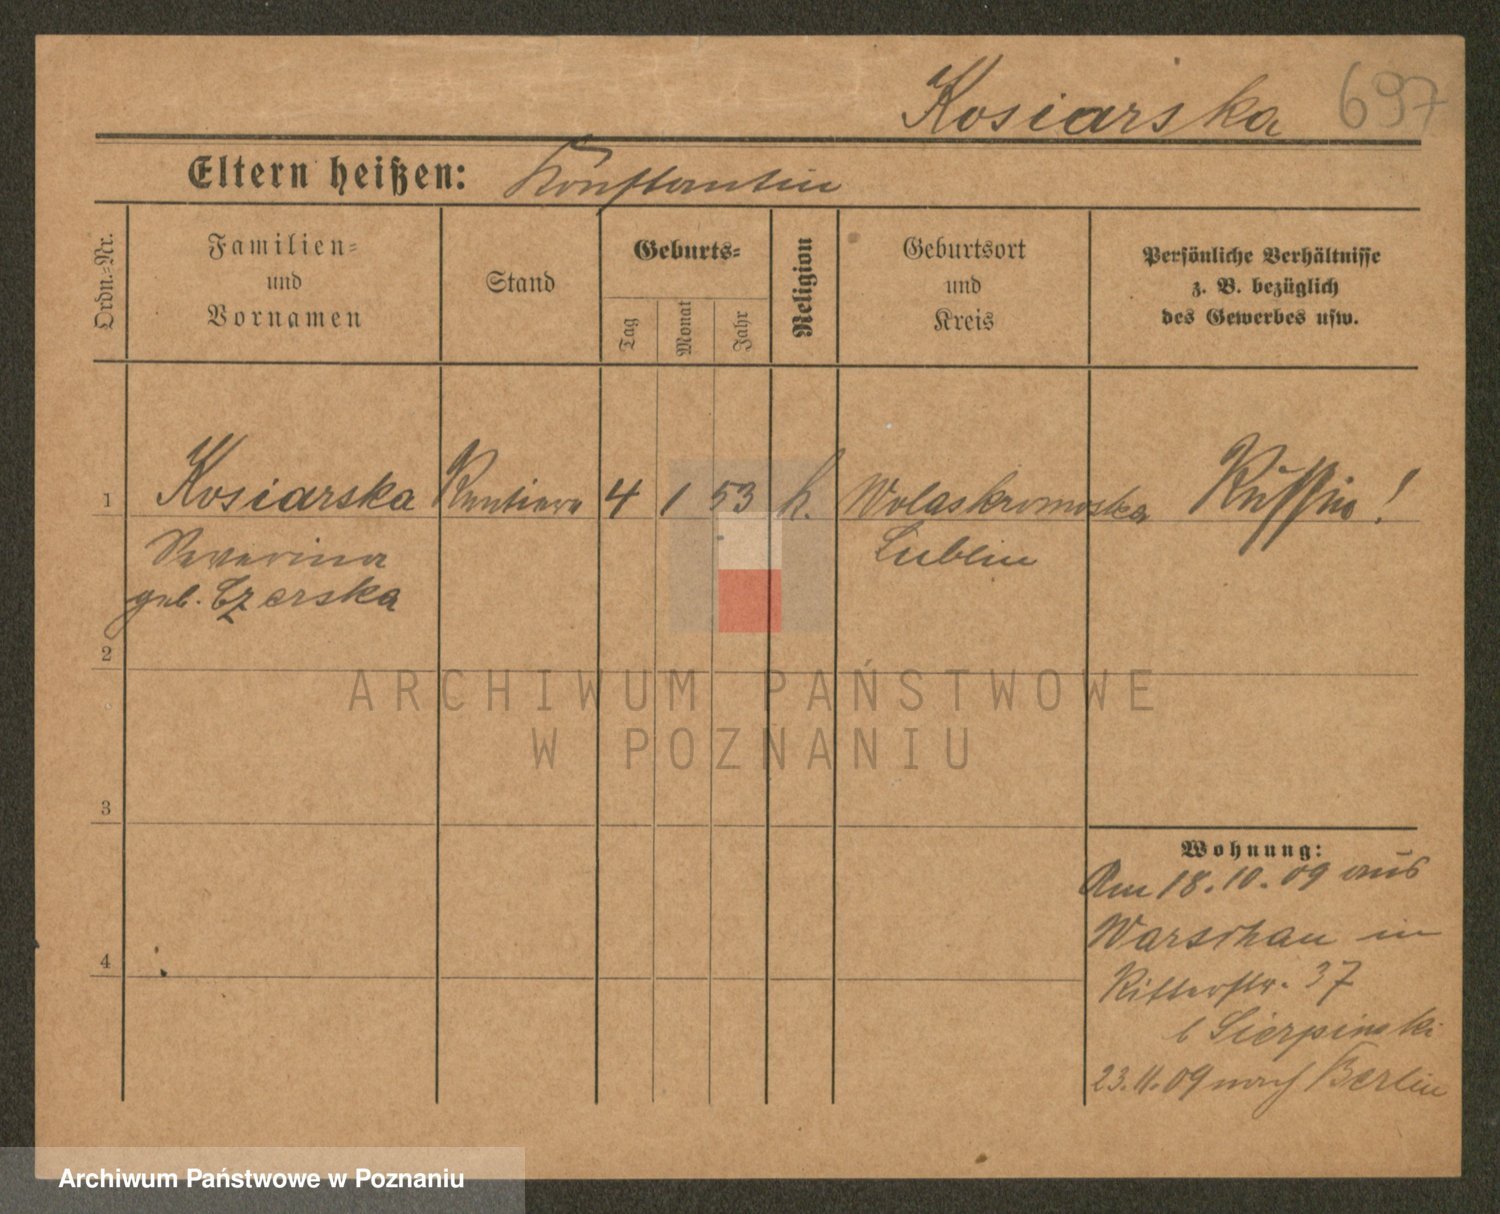 Kosiarska 697
Eltern heißen: Konstantin
Ordn.-Nr.
Familien-
und
Vornamen
Stand
Geburts-
Tag
Monat
Jahr
Religion
Geburtsort
und
Kreis
Persönliche Verhältnisse
z. B. bezüglich
des Gewerbes usw.
1 Kosiarska Rentiere 4 1 53 k. Wolaskromoska Russin!
Severina Lublin
geb. Czerska
2
ARCHIWUM PAŃSTWOWE
W POZNANIU
3
Wohnung:
Am 18.10.09 aus
Warschau in
4
Ritterstr. 37
b Sierpinski
23.11.09 nach Berlin
Archiwum Państwowe w Poznaniu